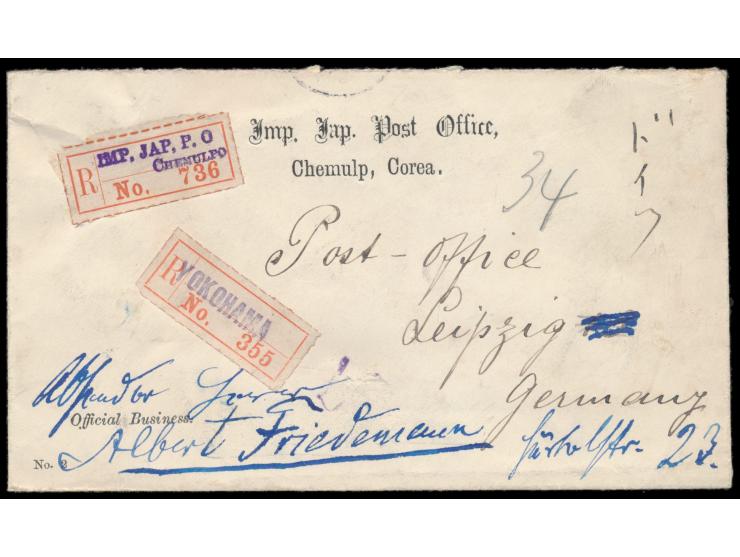 Imp. Jap. Post Office,
Chemulp, Corea.
IMP. JAP. P. O
CHEMULPO
R No. 736
34
ドイツ
Post-office
Leipzig
Germany
R YOKOHAMA
No. 355
Absender Herrn
Official Business.
Albert Friedemann
23.
No. 2